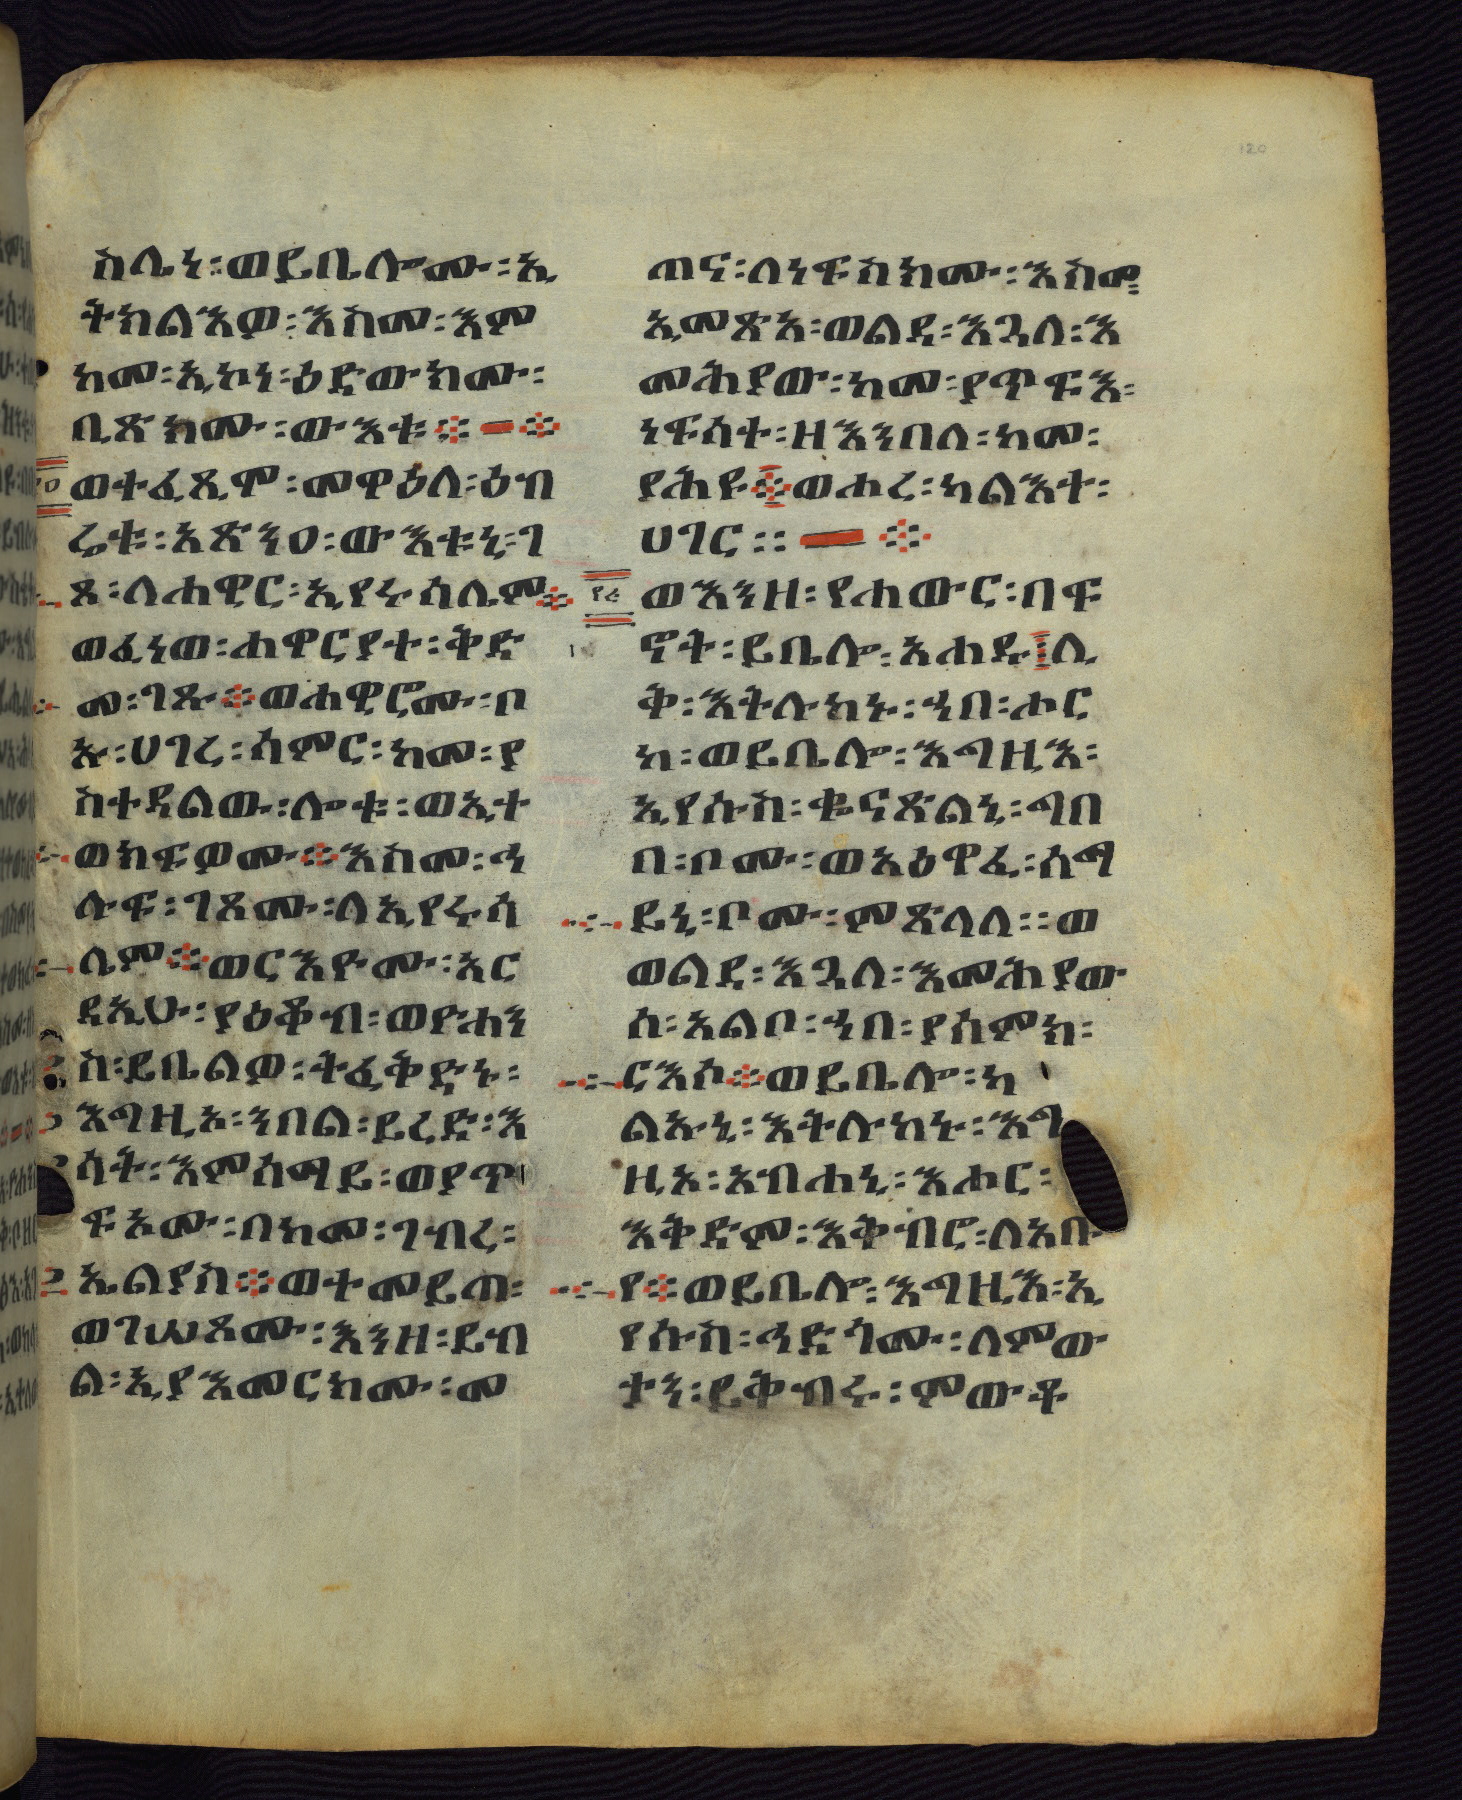 120
ስሌነ፡ወይቤሎሙ፡ኢ
ትክልእዎ፡እስመ፡እም
ከመ፡ኢኮነ፡ዕድውክሙ፡
ቢጽክሙ፡ውእቱ፨ — ፨
ወተፈጺሞ፡መዋዕለ፡ዕብ
ሬቱ፡አጽንዐ፡ውእቱኒ፡ገ
ጾ፡ለሐዊር፡ኢየሩሳሌም፨
ወፈነወ፡ሐዋርያተ፡ቅድ
መ፡ገጹ፨ወሐዊሮሙ፡ቦ
ኡ፡ሀገረ፡ሳምር፡ከመ፡ያ
ስተዳልው፡ሎቱ፡ወኢተ
ወክፍዎሙ፨እስመ፡ኀ
ሉፍ፡ገጾሙ፡ለኢየሩሳ
ሌም፨ወርእዮሙ፡አር
ዳኢሁ፡ያዕቆብ፡ወዮሐን
ስ፡ይቤልዎ፡ትፈቅድኑ፡
እግዚኦ፡ንበል፡ይረድ፡እ
ሳት፡እምሰማይ፡ወያጥ
ፍኦሙ፡በከመ፡ገብረ፡
ኤልያስ፨ወተመይጠ፡
ወገሠጾሙ፡እንዘ፡ይብ
ል፡ኢያእመርክሙ፡መ
ጠኖ፡ለነፍስክሙ፡እስመ፡
ኢመጽአ፡ወልደ፡እጓለ፡እ
መሕያው፡ከመ፡ያጥፍእ፡
ነፍሳተ፡ዘእንበለ፡ከመ፡
ያሕዩ፨ወሐረ፡ካልእተ፡
ሀገር፡፡ — ፨
፲፭
ወእንዘ፡የሐውር፡በፍ
ኖት፡ይቤሎ፡አሐዱ፡ሊ
ቅ፡እትሉከኑ፡ኀበ፡ሖር
ከ፡ወይቤሎ፡እግዚእ፡
ኢየሱስ፡ቈናጽልኒ፡ግበ
በ፡ቦሙ፡ወአዕዋፈ፡ሰማ
ይኒ፡ቦሙ፡ምጽላለ፡፡ወ
ወልደ፡እጓለ፡እመሕያው
ሰ፡አልቦ፡ኀበ፡ያሰምክ፡
ርእሶ፨ወይቤሎ፡ካ
ልኡኒ፡እትሉከኑ፡እግ
ዚኦ፡አብሐኒ፡እሖር፡
እቅድም፡እቅብሮ፡ለአቡ
የ፨ወይቤሎ፡እግዚእ፡ኢ
የሱስ፡ኅድጎሙ፡ለምው
ተን፡ይቅብሩ፡ምውቶ